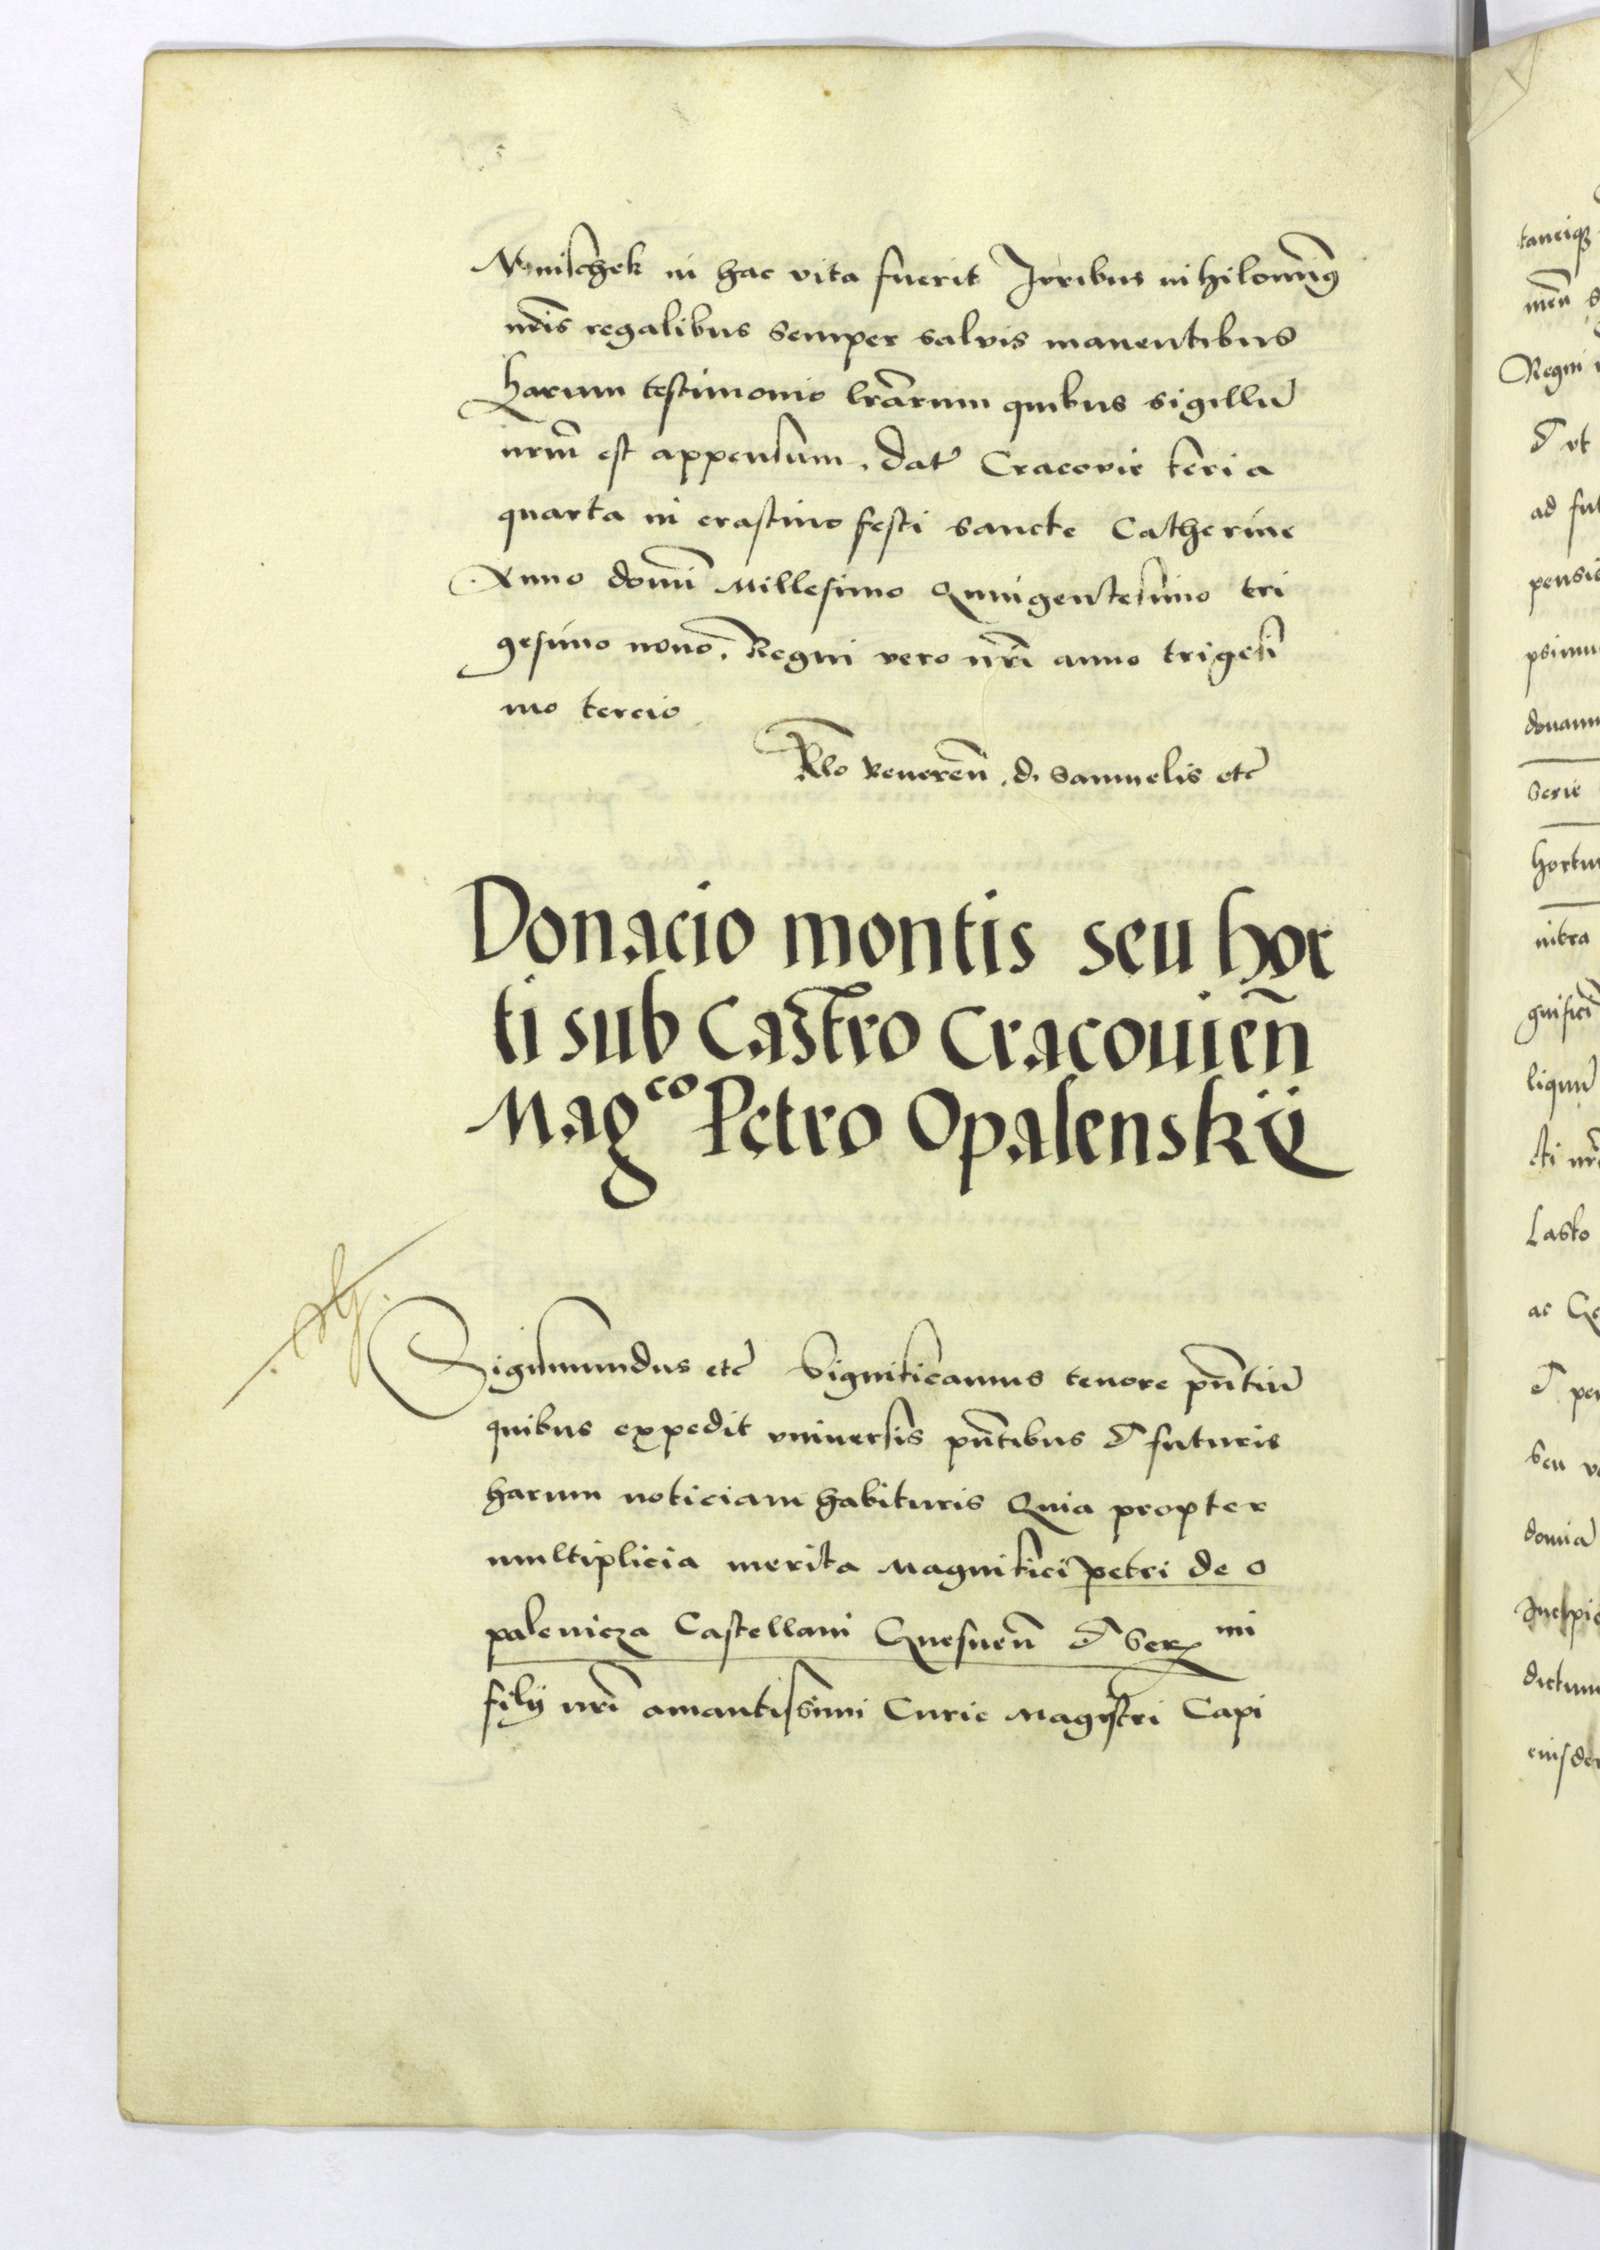 Mnischek in hac vita fuerit Juribus nihilomin9
nris regalibus semper salvis manentibus
harum testimonio lrarum quibus sigillu
nrm est appensum, dat Cracovie feria
quarta in crastino festi sancte Catherine
Anno domi Millesimo Quingentesimo tri
gesimo nono. Regni vero nri anno trigesi
mo tercio
Rlo Reveren. d. Samuelis etc
Donacio montis seu hor
ti sub Castro Cracouien
Mag^co Petro Opalenskÿ
Sigismundus etc Significamus tenore pntiu
quibus expedit vniuersis pntibus & futuris
harum noticiam habituris Quia propter
multiplicia merita Magnifici petri de o
palenicza Castellani Gnesnen & Ser^mi
filij nri amantissimi Curie Magistri Capi
tanciq3
men
Regni
& vt
ad fut
pensio
donam
serie
hortu
intra
gnifici
Lasko
ac
& per
seu
dictum